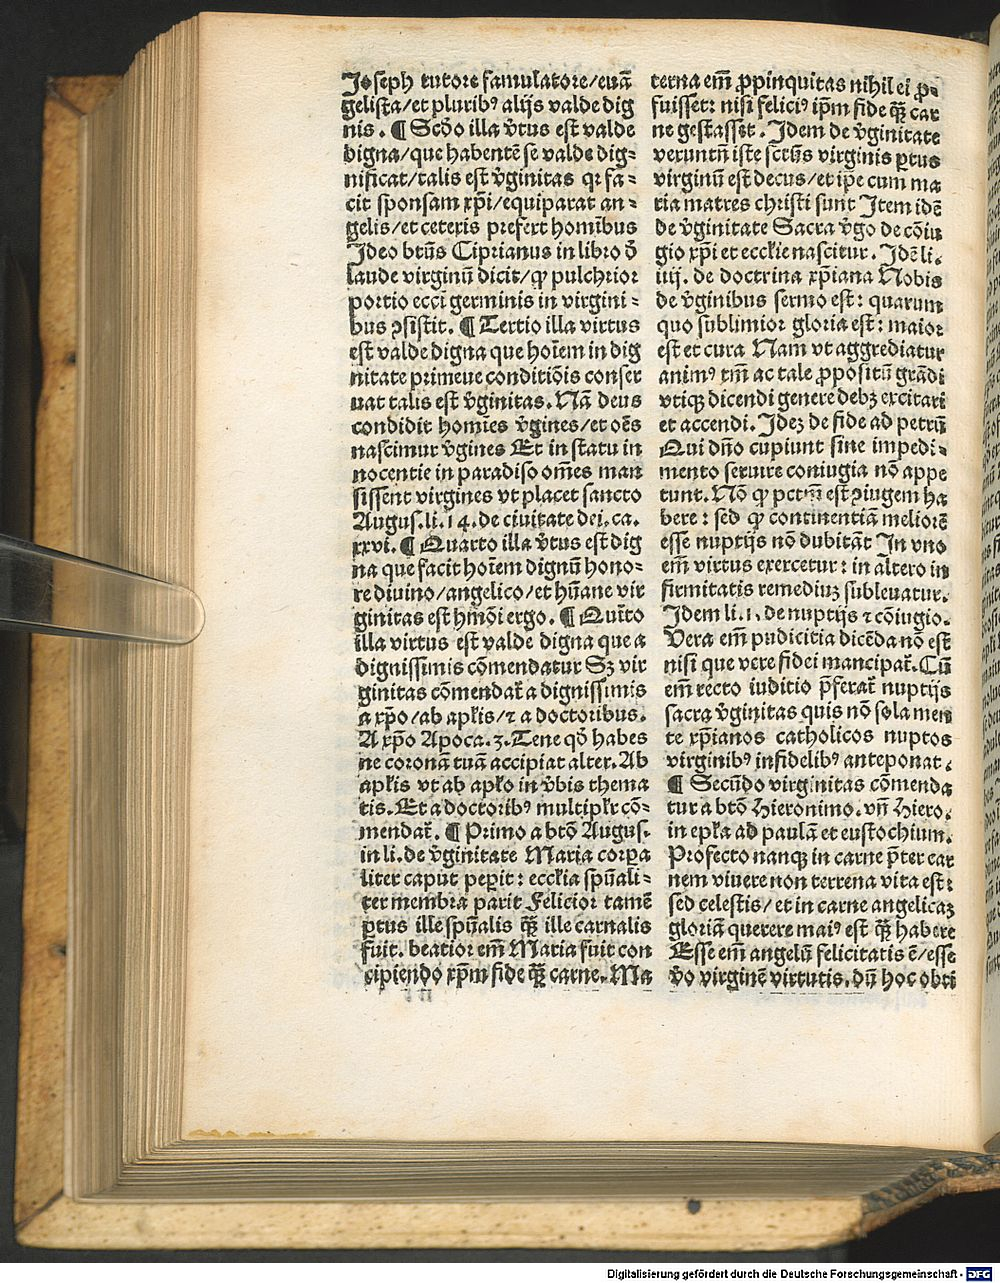 Joseph tutore famulatore/euã
gelista/et pluribꝰ alijs valde dig
nis. ¶ Scd̃o illa v̾tus est valde
digna/que habentẽ se valde dig⸗
nificat/talis est v̾ginitas qr fa⸗
cit sponsam xp̃i/equiparat an⸗
gelis/et ceteris prefert homĩbus
Ideo btũs Ciprianus in libro d̾
laude virginũ dicit/ꝙ pulchrior
portio ecci germinis in virgini⸗
bus ꝯsistit. ¶ Tertio illa virtus
est valde digna que hoĩem in dig
nitate primeue conditiõis conser
uat talis est v̾ginitas. Nã deus
condidit homĩes v̾gines/et oẽs
nascimur v̾gines Et in statu in
nocentie in paradiso om̃es man
sissent virgines vt placet sancto
Augus.li.14.de ciuitate dei.ca.
xxvi. ¶ Quarto illa v̾tus est dig
na que facit hoĩem dignũ hono⸗
re diuino/angelico/et hũane vir
ginitas est hm̃õi ergo. ¶ Quĩto
illa virtus est valde digna que a
dignissimis cõmendatur Sꝫ vir
ginitas cõmendat̾ a dignissimis
a xp̃o/ab apl̃is/⁊ a doctoribus.
A xp̃o Apoca.3.Tene qd̾ habes
ne coronã tuã accipiat alter. Ab
apl̃is vt ab apl̃o in v̾bis thema
tis. Et a doctoribꝰ multipl̃r cõ⸗
mendat̾. ¶ Primo a btõ Augus.
in li. de v̾ginitate Maria corpa
liter caput peꝑit: eccl̃ia spũali⸗
ter membra parit Felicior tamẽ
ꝑtus ille spũalis qꝫ̃ ille carnalis
fuit. beatior em̃ Maria fuit con
cipiendo xp̃m fide qꝫ̃ carne. Ma
terna em̃ ꝓpinquitas nihil ei ꝓ⸗
fuisset: nisi feliciꝰ ip̃m fide qꝫ̃ car
ne gestasset. Idem de v̾ginitate
veruntñ iste scũs virginis ꝑtus
virginũ est decus/et ip̃e cum ma
ria matres christi sunt Item idẽ
de v̾ginitate Sacra v̾go de cõiu
gio xp̃i et eccl̃ie nascitur. Idẽ li.
iiij. de doctrina xp̃iana Nobis
de v̾ginibus sermo est: quarum
quo sublimior gloria est: maior
est et cura Nam vt aggrediatur
animꝰ tm̃ ac tale ꝓpositũ grãdi
vtiqꝫ dicendi genere debꝫ excitari
et accendi. Ideꝫ de fide ad petrũ
Qui dño cupiunt sine impedi⸗
mento seruire coniugia nõ appe
tunt. Nõ ꝙ pctm̃ est ꝯiugem ha
bere: sed ꝙ continentiã meliorẽ
esse nuptijs nõ dubitãt In vno
em̃ virtus exercetur: in altero in
firmitatis remediuꝫ subleuatur.
Idem li.1. de nuptijs ⁊ cõiugio.
Vera em̃ pudicitia dicẽda nõ est
nisi que vere fidei mancipat̾. Cũ
em̃ recto iuditio p̃ferat̾ nuptijs
sacra v̾ginitas quis nõ sola men
te xp̃ianos catholicos nuptos
virginibꝰ infidelibꝰ anteponat.
¶ Secũdo virginitas cõmenda
tur a btõ Hieronimo. vñ Hiero.
in epl̃a ad paulã et eustochium.
Profecto nanqꝫ in carne p̃ter car
nem viuere non terrena vita est:
sed celestis/et in carne angelicaꝫ
gloriã querere maiꝰ est qꝫ̃ habere
Esse em̃ angelũ felicitatis ẽ/esse
v̾o virginẽ virtutis. dũ hoc obti
Digitalisierung gefördert durch die Deutsche Forschungsgemeinschaft - DFG